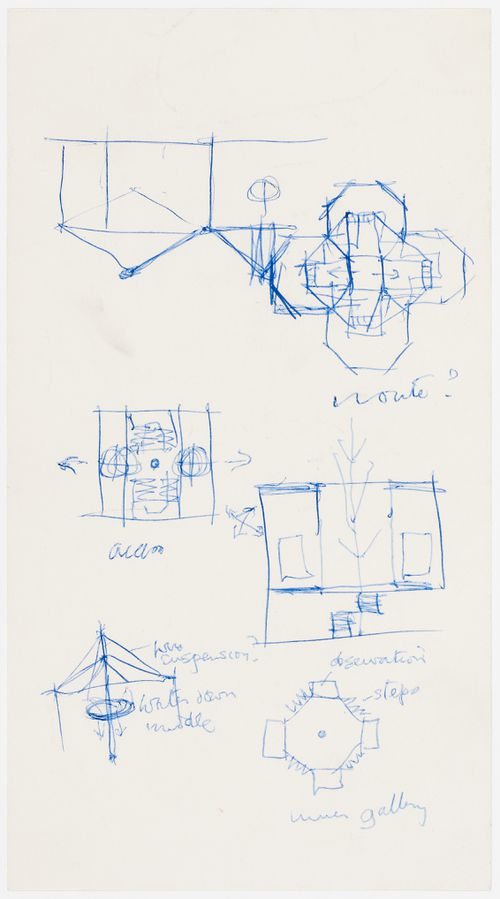 route?
suspension?
water down
middle
observation
steps
inner gallery